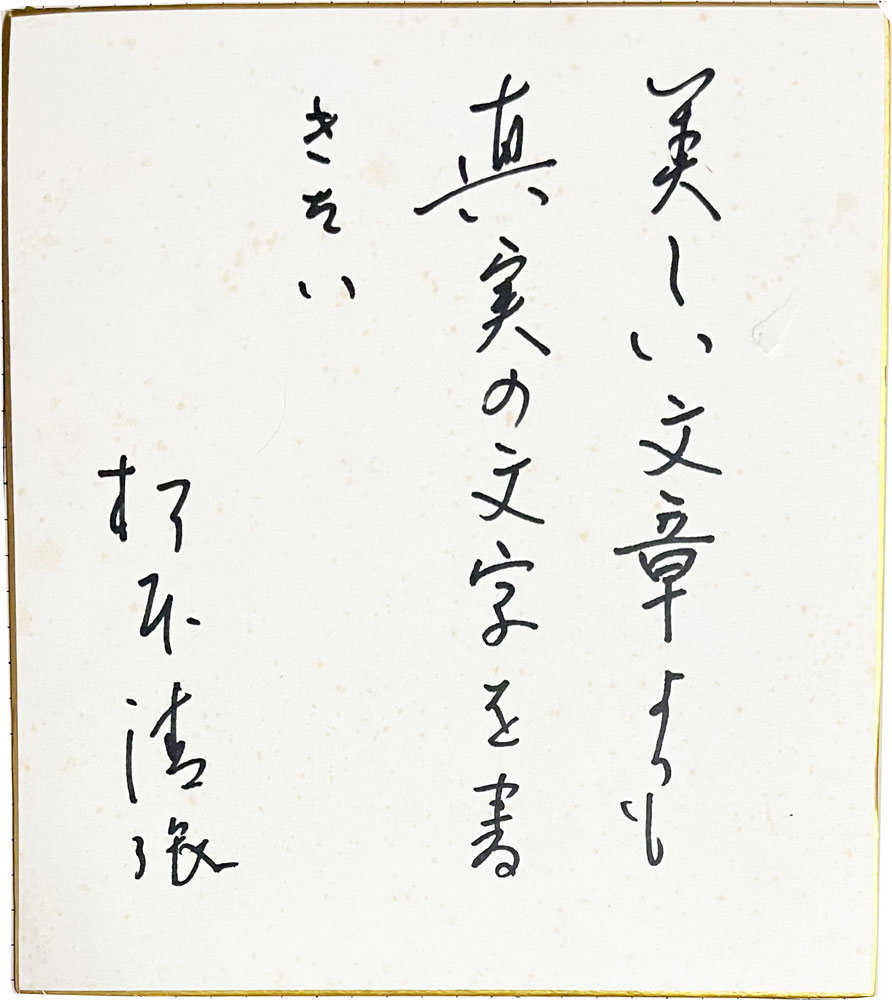 美しい文章よりも
真実の文字を書
きたい
松本清張